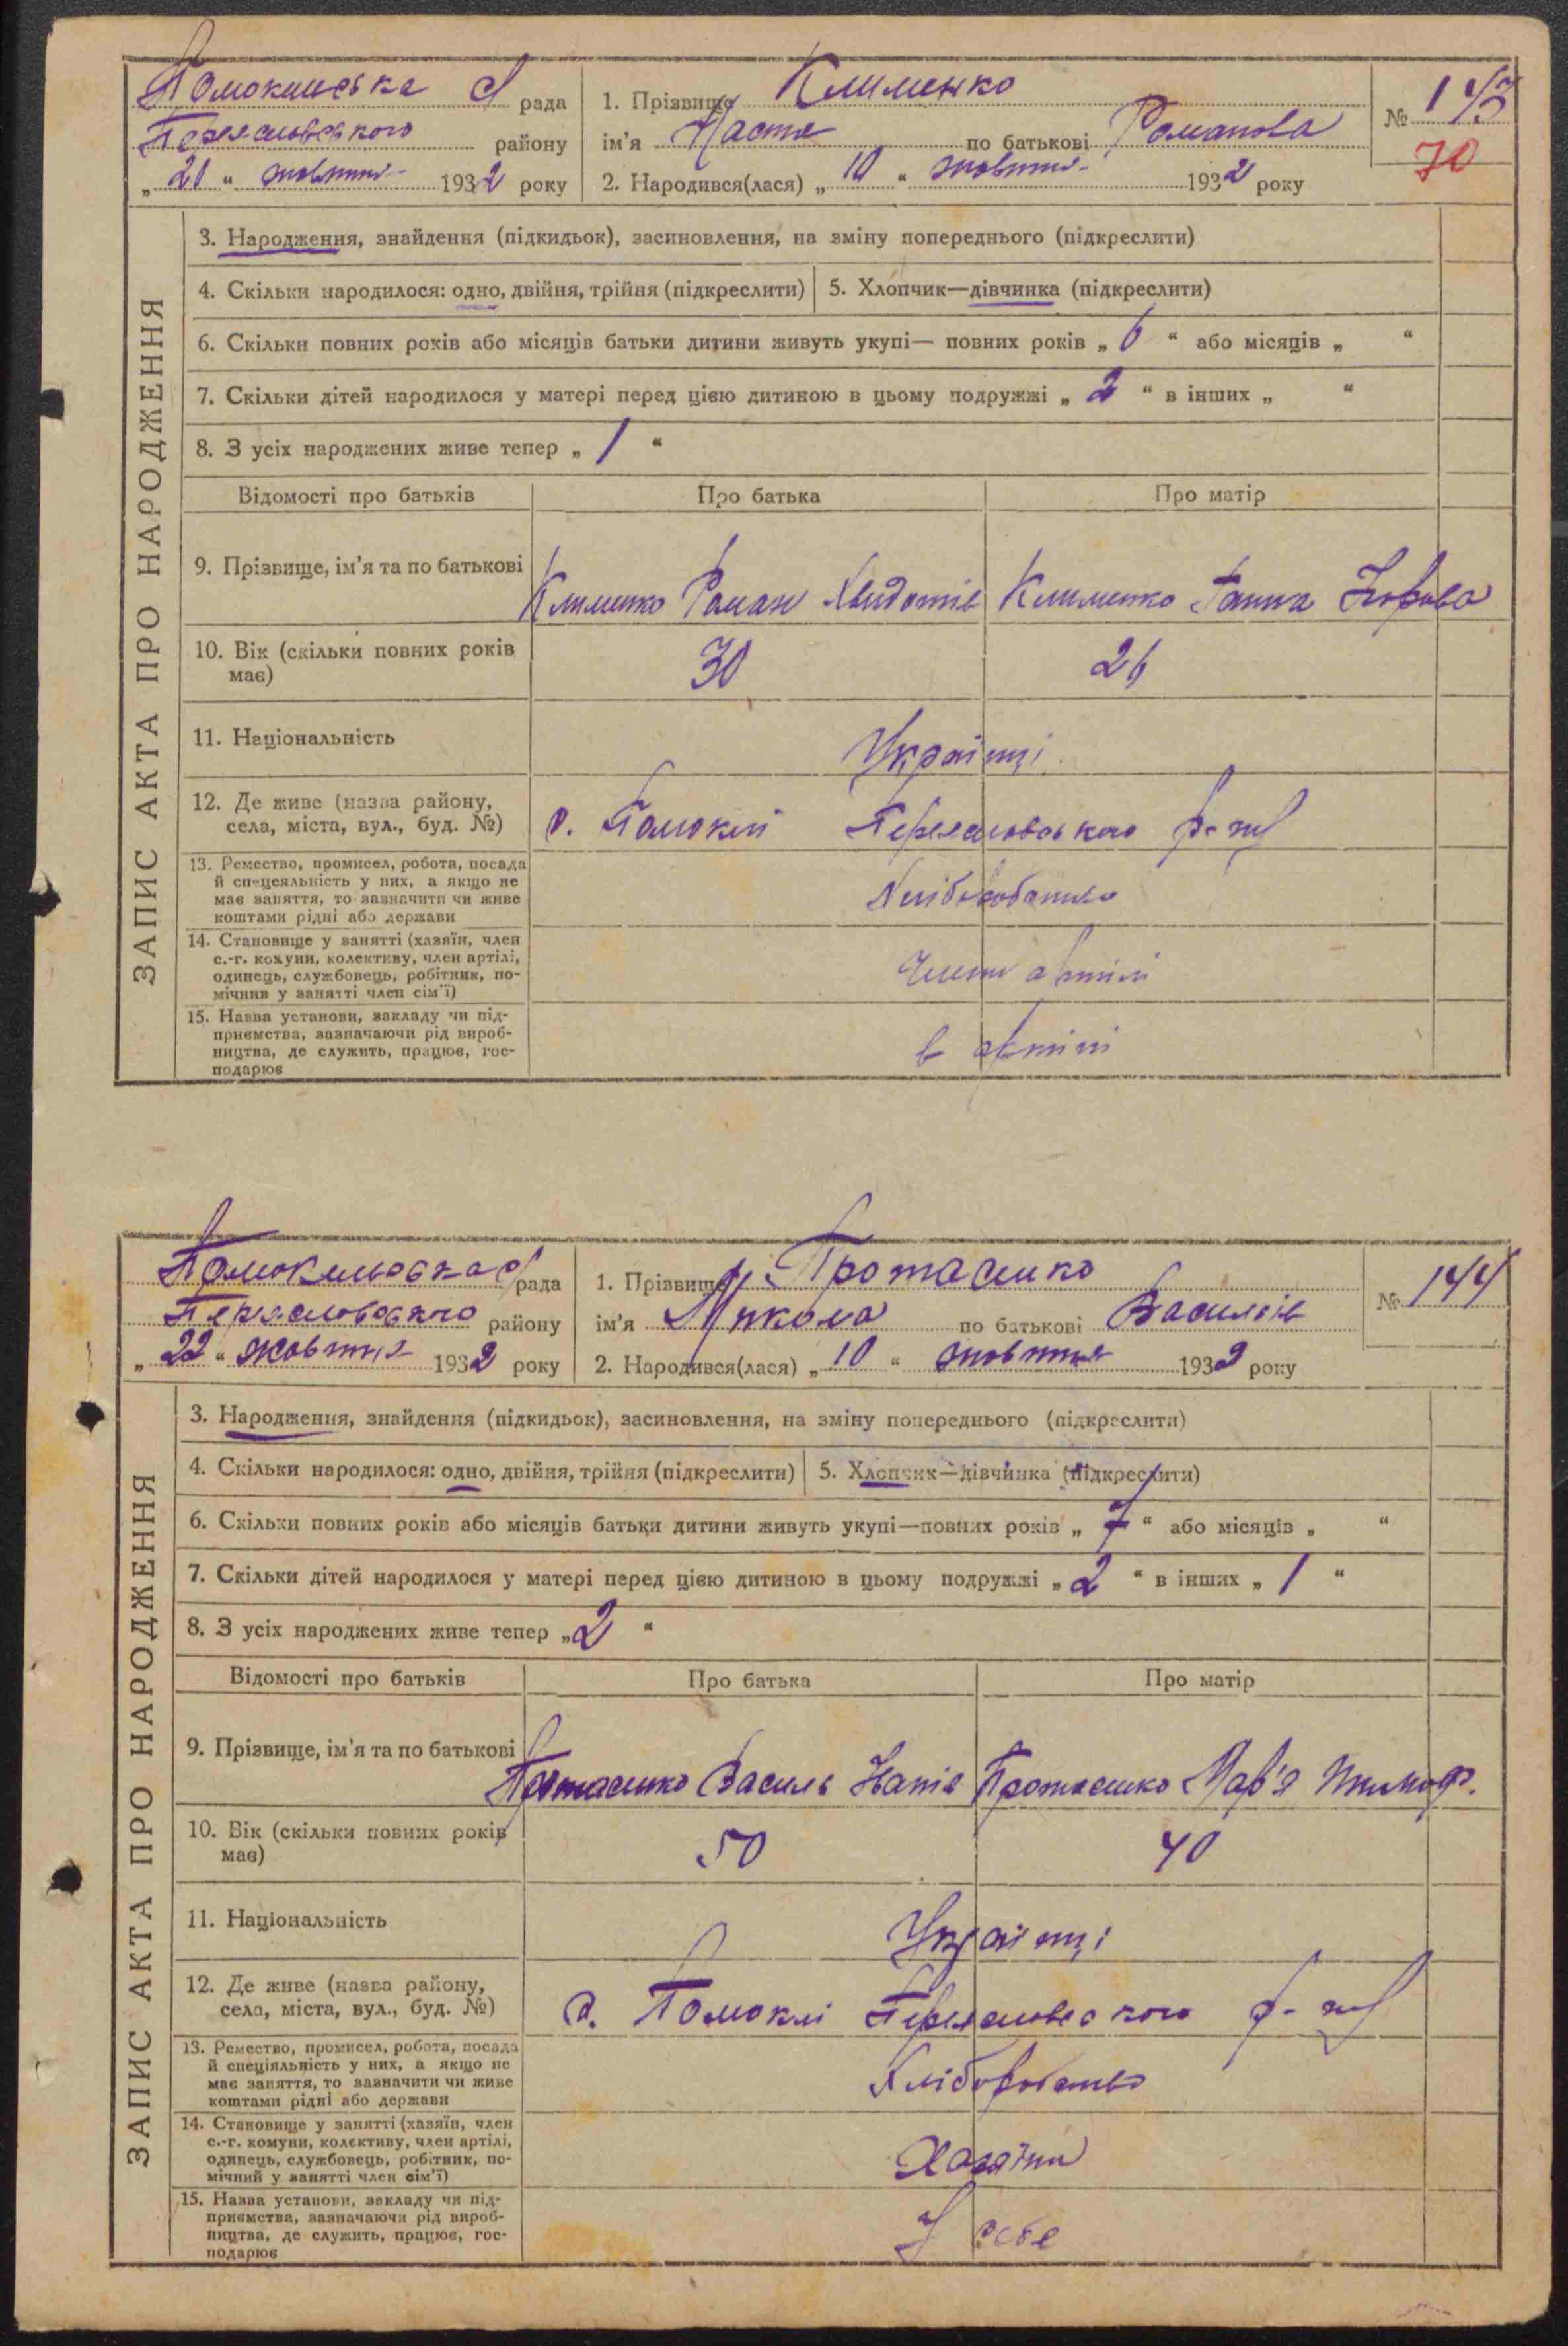 Помоклиська с/рада
1. Прізвище Клименко
№ 143
Переяславського району
ім'я Настя по батькові Романова
70
„ 20 “ жовтня 1932 року
2. Народився(лася) „ 10 “ жовтня 1932 року
ЗАПИС АКТА ПРО НАРОДЖЕННЯ
3. Народження, знайдення (підкидьок), засиновлення, на зміну попереднього (підкреслити)
4. Скільки народилося: одно, двійня, трійня (підкреслити) 5. Хлопчик—дівчинка (підкреслити)
6. Скільки повних років або місяців батьки дитини живуть укупі— повних років „ 6 “ або місяців „ “
7. Скільки дітей народилося у матері перед цією дитиною в цьому подружжі „ 2 “ в інших „ “
8. З усіх народжених живе тепер „ 1 “
Відомості про батьків Про батька Про матір
9. Прізвище, ім'я та по батькові
Клименко Роман Клименко Ганна
10. Вік (скільки повних років
має)
30 26
11. Національність
Українці
12. Де живе (назва району,
села, міста, вул., буд. №)
с. Помоклі Переяславського р-ну
13. Ремество, промисел, робота, посада
й спецеяльність у них, а якщо не
має заняття, то зазначити чи живе
коштами рідні або держави
Хліборобство
14. Становище у занятті (хазяїн, член
с.-г. комуни, колективу, член артілі,
одинець, службовець, робітник, по-
мічнив у занятті член сім'ї)
Члени артілі
15. Назва установи, закладу чи під-
приємства, зазначаючи рід вироб-
ництва, де служить, працює, гос-
подарює
в артілі
с/рада
1. Прізвище Протасенко
№ 144
Переяславського району
ім'я Микола по батькові Васильів
„ 22 “ жовтня 1932 року
2. Народився(лася) „ 10 “ жовтня 1932 року
ЗАПИС АКТА ПРО НАРОДЖЕННЯ
3. Народження, знайдення (підкидьок), засиновлення, на зміну попереднього (підкреслити)
4. Скільки народилося: одно, двійня, трійня (підкреслити) 5. Хлопчик—дівчинка (підкреслити)
6. Скільки повних років або місяців батьки дитини живуть укупі—повних років „ 7 “ або місяців „ “
7. Скільки дітей народилося у матері перед цією дитиною в цьому подружжі „ 2 “ в інших „ 1 “
8. З усіх народжених живе тепер „ 2 “
Відомості про батьків Про батька Про матір
9. Прізвище, ім'я та по батькові
Протасенко Василь Протасенко Мар'я Тимоф.
10. Вік (скільки повних років
має)
50 40
11. Національність
Українці
12. Де живе (назва району,
села, міста, вул., буд. №)
с. Помоклі Переяславського р-ну
13. Ремество, промисел, робота, посада
й спеціяльність у них, а якщо не
має заняття, то зазначити чи живе
коштами рідні або держави
Хліборобство
14. Становище у занятті (хазяїн, член
с.-г. комуни, колективу, член артілі,
одинець, службовець, робітник, по-
мічний у занятті член сім'ї)
Хазяїни
15. Назва установи, закладу чи під-
приємства, зазначаючи рід вироб-
ництва, де служить, працює, гос-
подарює
У себе